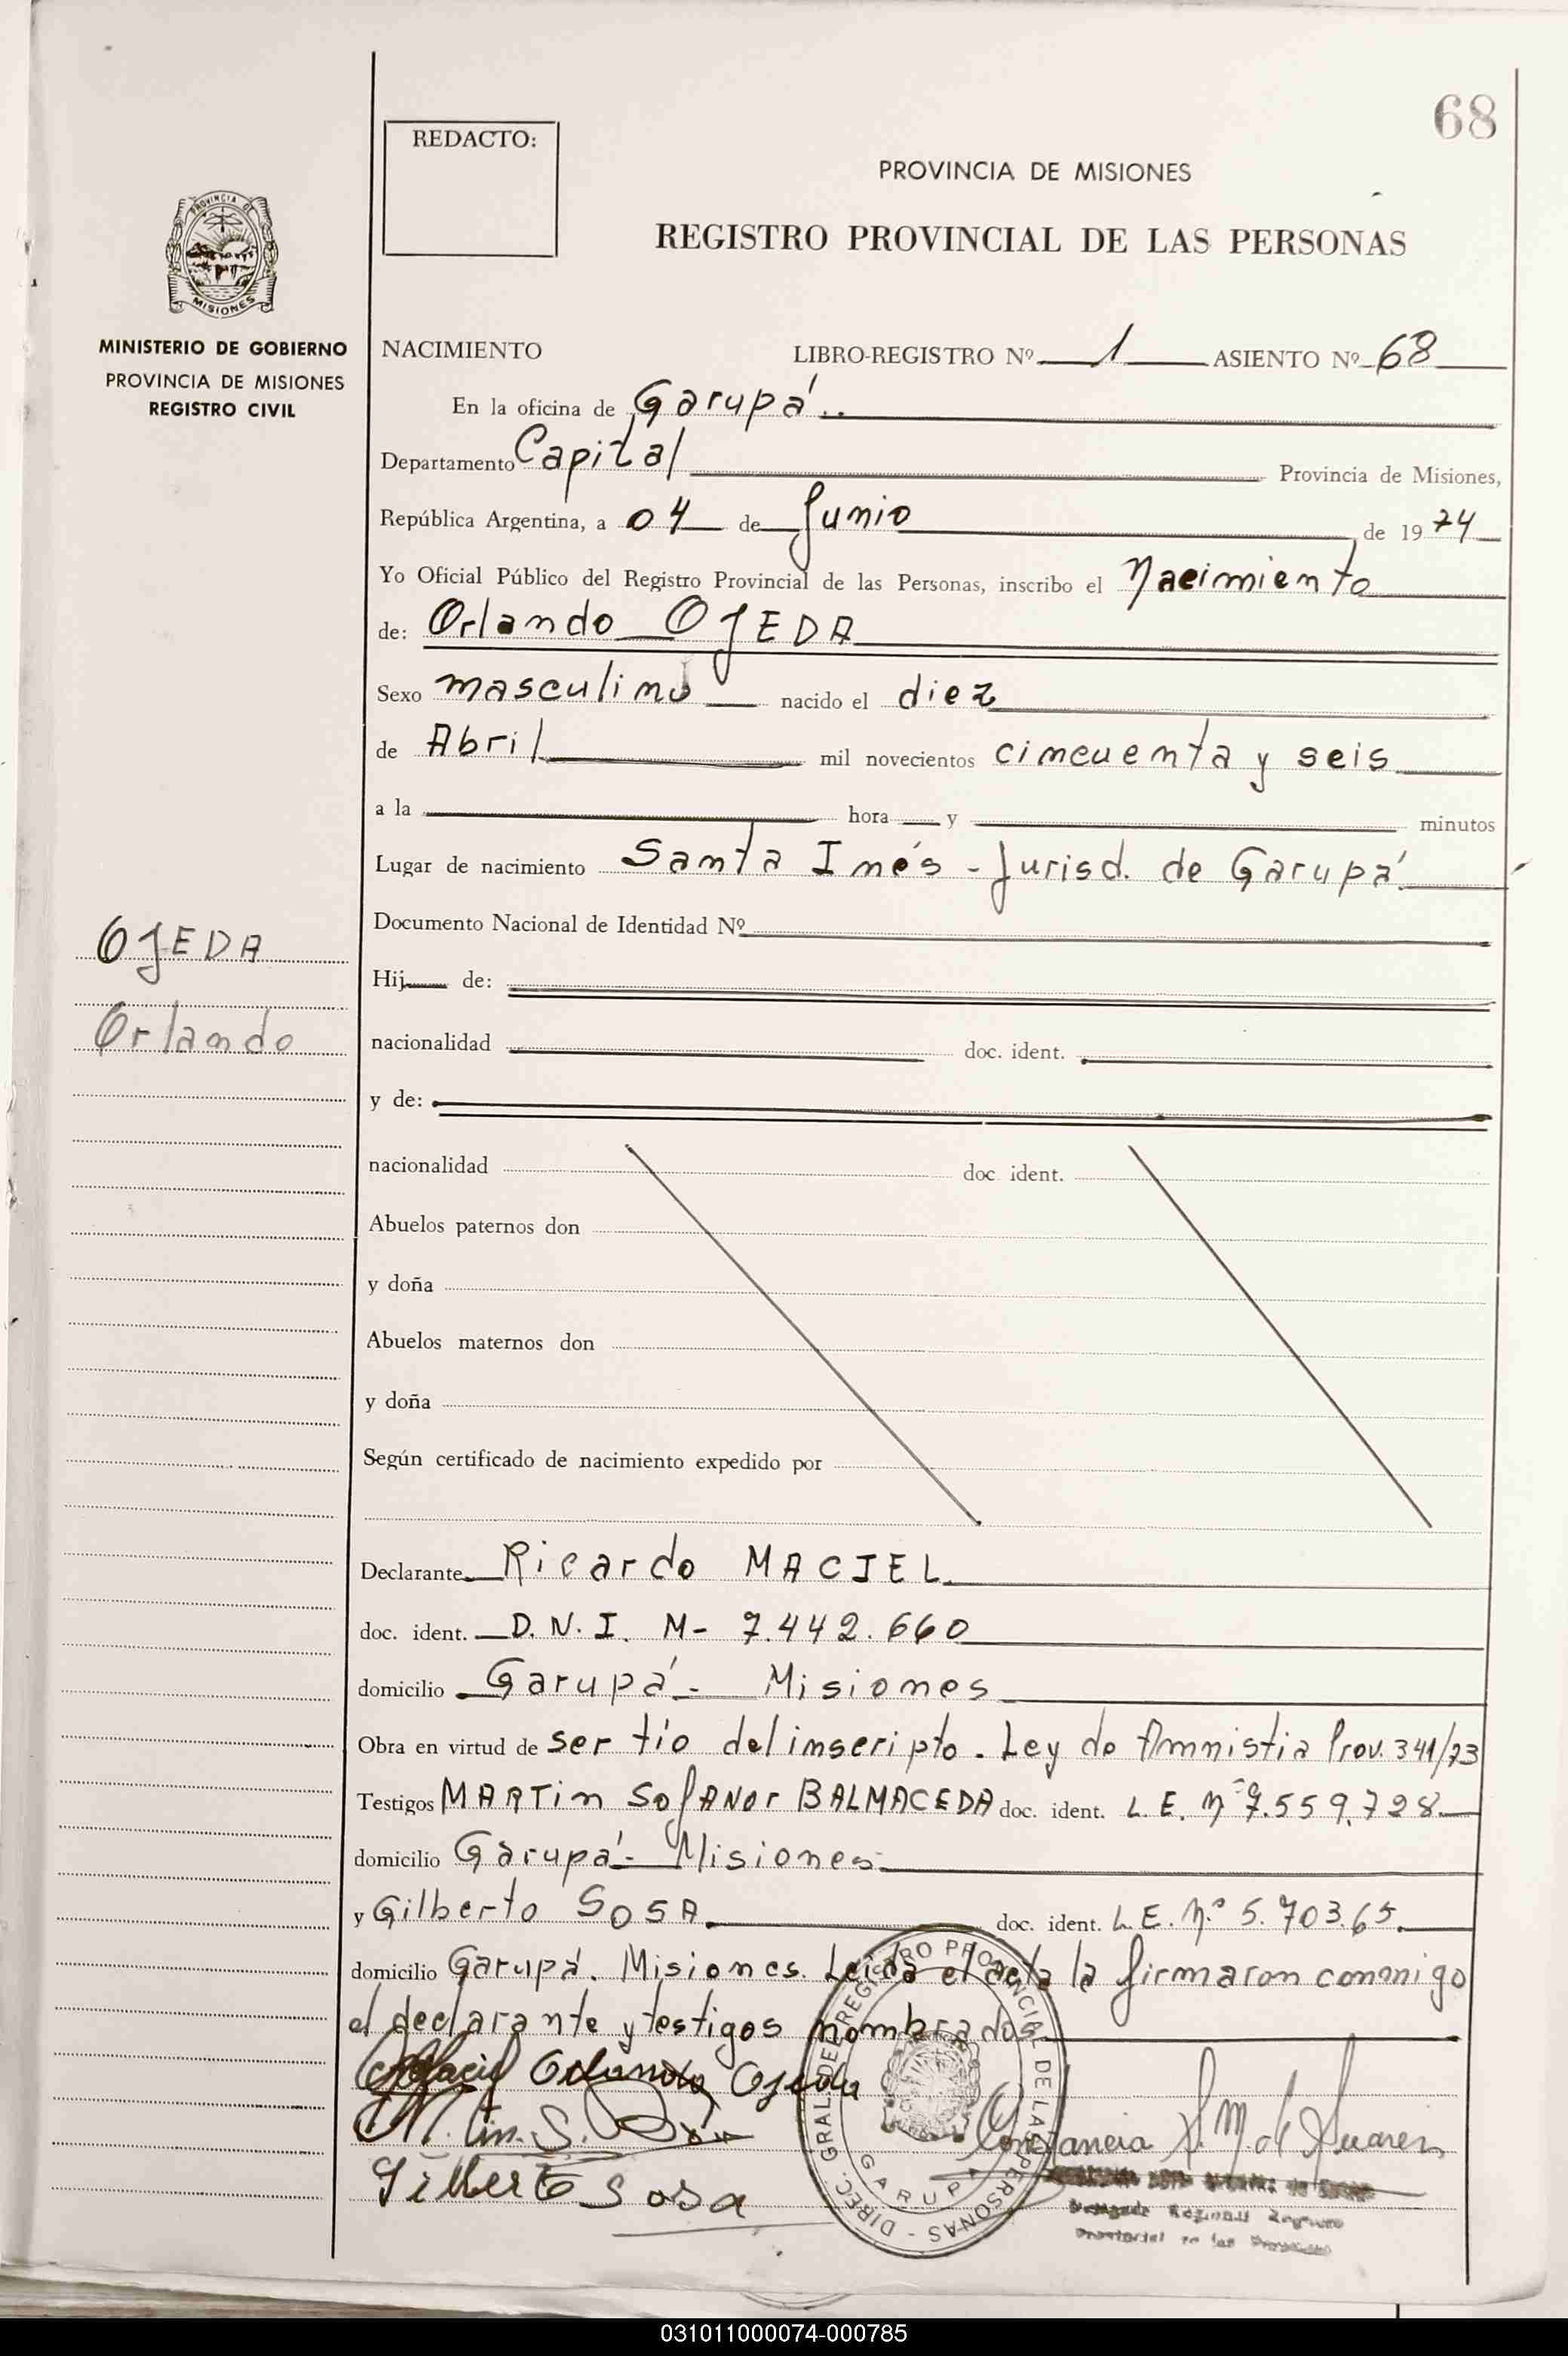 68
REDACTO:
PROVINCIA DE MISIONES
REGISTRO PROVINCIAL DE LAS PERSONAS
PROVINCIA DE
MISIONES
MINISTERIO DE GOBIERNO
PROVINCIA DE MISIONES
REGISTRO CIVIL
NACIMIENTO LIBRO-REGISTRO Nº 1 ASIENTO Nº 68
En la oficina de Garupá..
Departamento Capital Provincia de Misiones,
República Argentina, a 04 de Junio de 1974
Yo Oficial Público del Registro Provincial de las Personas, inscribo el Nacimiento
de: Orlando OJEDA
Sexo masculino nacido el diez
de Abril mil novecientos cincuenta y seis
a la hora y minutos
Lugar de nacimiento Santa Inés - Jurisd. de Garupá
Documento Nacional de Identidad Nº
OJEDA
Orlando
Hij de:
nacionalidad doc. ident.
y de:
nacionalidad doc. ident.
Abuelos paternos don
y doña
Abuelos maternos don
y doña
Según certificado de nacimiento expedido por
Declarante Ricardo MACIEL
doc. ident. D.N.I. M- 7.442.660
domicilio Garupá - Misiones
Obra en virtud de ser tío del inscripto. Ley de Amnistia Prov. 341/73
Testigos MARTIN SOLANOr BALMACEDA doc. ident. L.E. Nº 7.559.728
domicilio Garupá - Misiones
y Gilberto SOSA doc. ident. L.E. Nº 5.703.65
domicilio Garupá. Misiones. Leida el acta la firmaron conmigo
el declarante y testigos nombrados
Orlando Ojeda
Gilberto Sosa
Constancia S. M. de Suarez
DIREC. GRAL. DEL REGISTRO PROVINCIAL DE LAS PERSONAS - GARUPA
Delegada Regional Registro
Provincial de las Personas
031011000074-000785